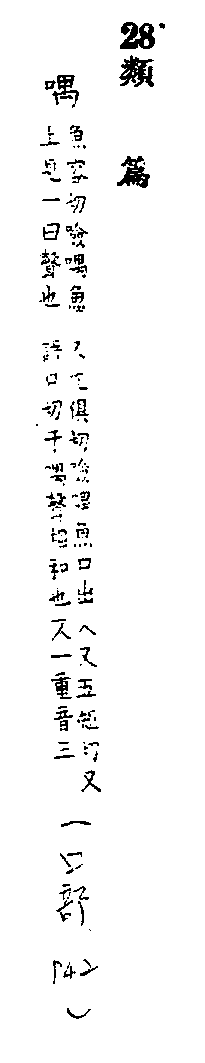 28. 類 篇
喁
魚容切噞喁魚
上見一曰聲也
又元俱切噞喁魚口出入又五切又
語口切于喁聲相和也文一重音三
(口部 P42)